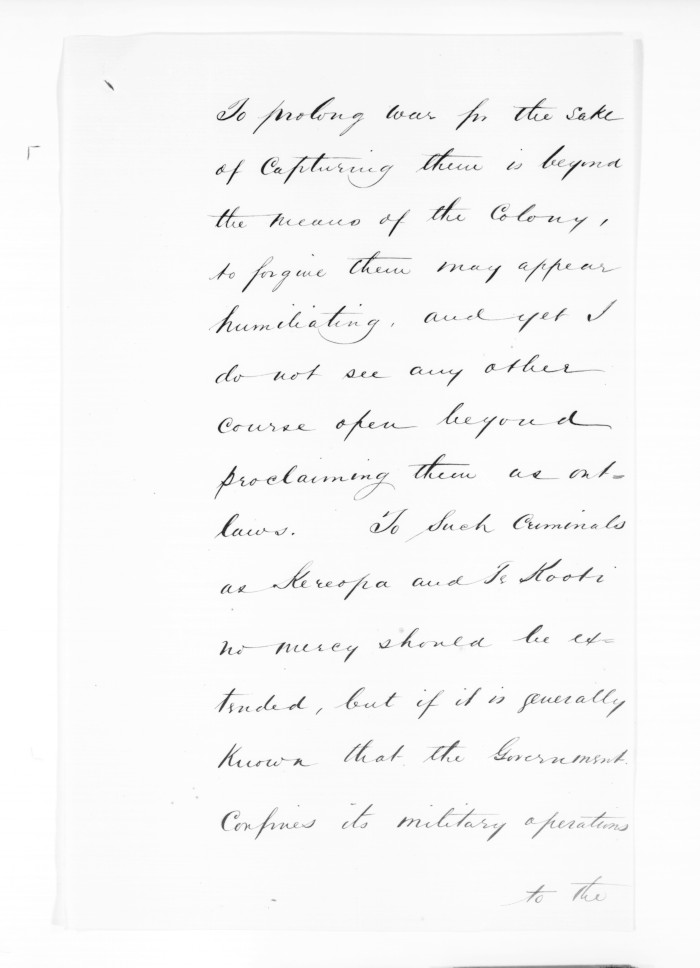 To prolong war for the sake
of Capturing them is beyond
the means of the Colony,
to forgive them may appear
humiliating, and yet I
do not see any other
course open beyond
proclaiming them as out=
laws. To Such Criminals
as Kereopa and Te Kooti
no mercy should be ex=
tended, but if it is generally
Known that the Government
Confines its military operations
to the